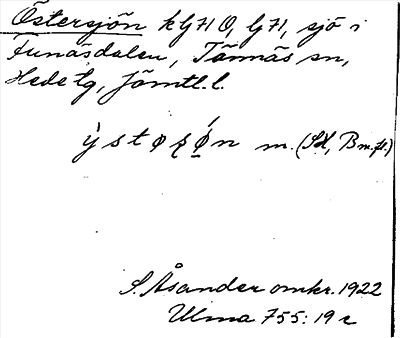 Östersjön kG71 O, G71, sjö i
Funäsdalen, Tännäs sn,
Hede tg, Jämtl. l.
m. (SH, B m.fl.)
S. Åsander omkr. 1922
Ulma 755: 19 c